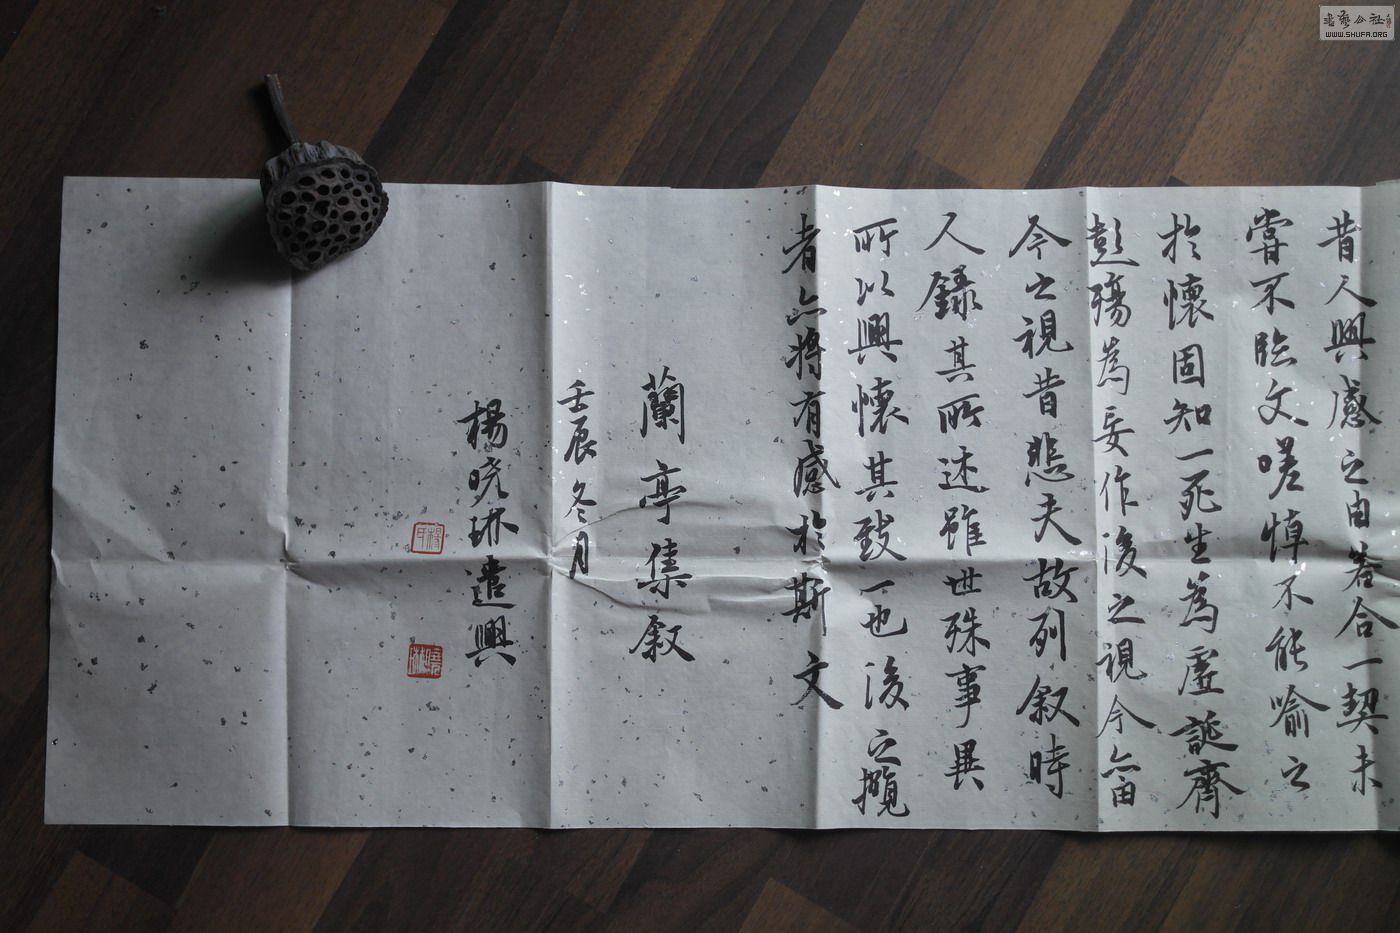 昔人興感之由若合一契未
嘗不臨文嗟悼不能喻之
於懷固知一死生為虛誕齊
彭殤為妄作後之視今亦由
今之視昔悲夫故列叙時
人錄其所述雖世殊事異
所以興懷其致一也後之攬
者亦將有感於斯文
蘭亭集叙
壬辰冬月
楊曉琳遣興
楊氏
書藝公社
WWW.SHUFA.ORG